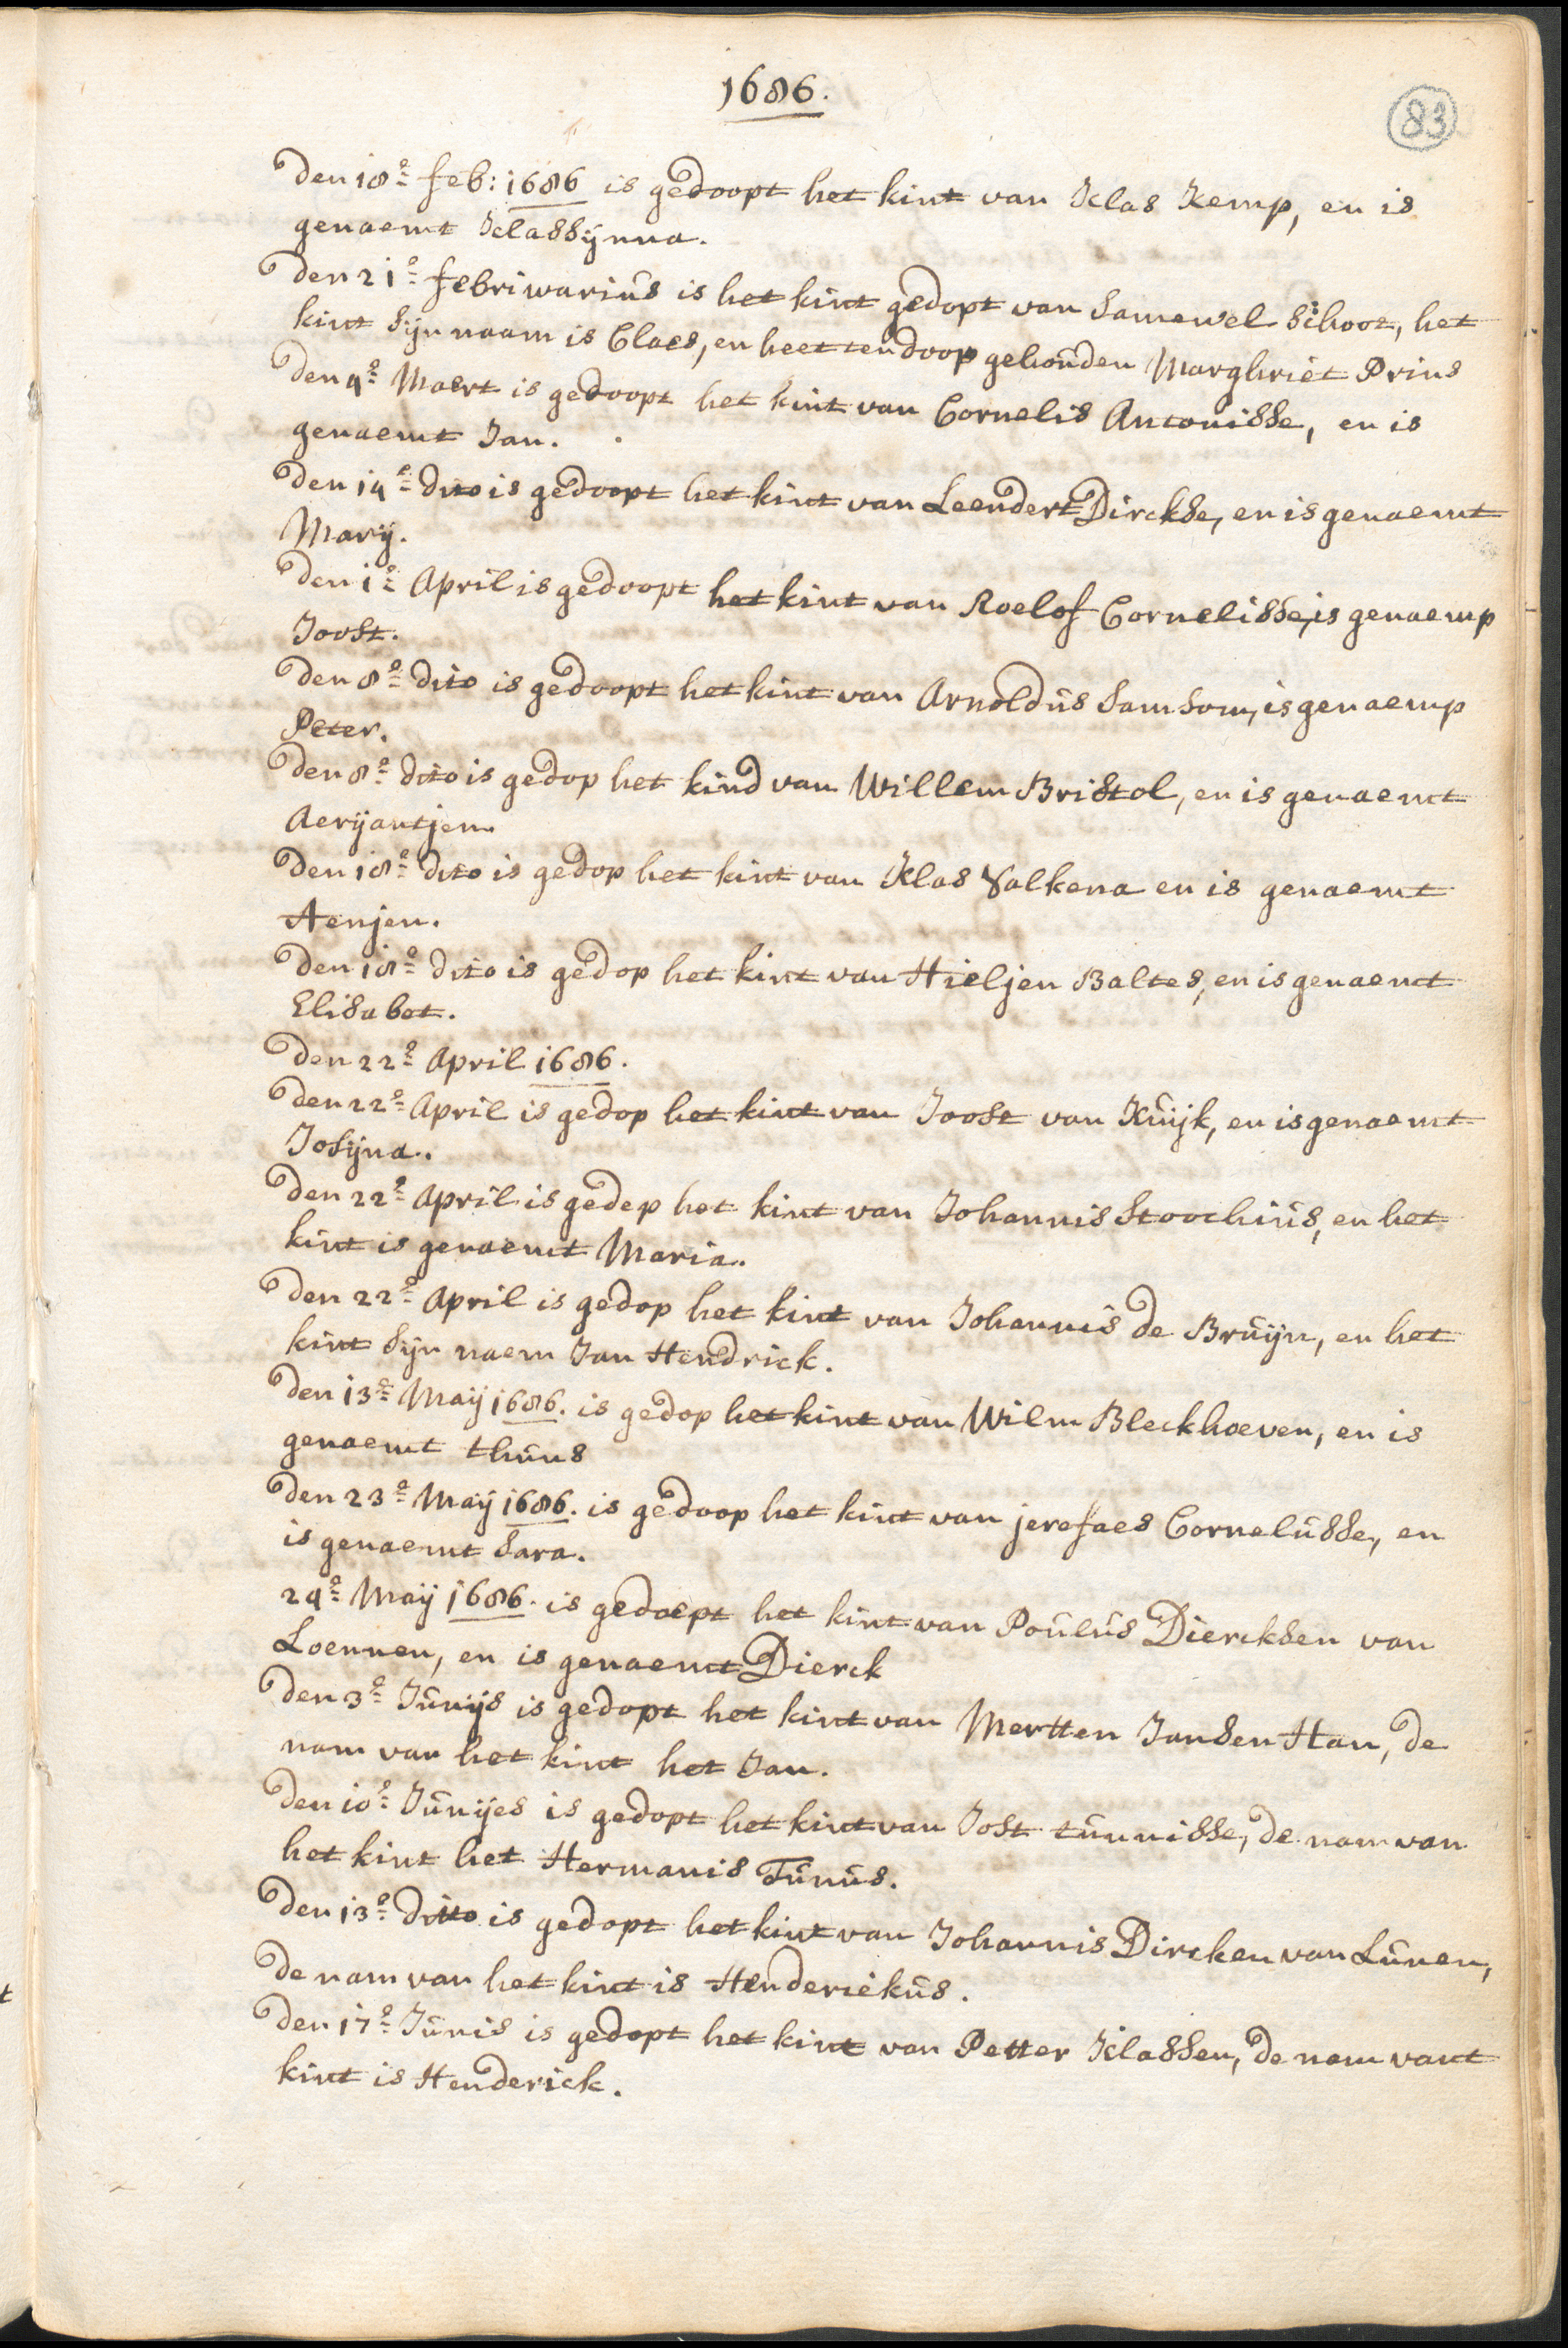 1686.
83
Den 18e feb: 1686 is gedoopt het kint van Klas Kemp, en is
genaemt Klassijnna.
Den 21e febriwarius is het kint gedopt van Samewel Schoor, het
kint sijn naam is Claes, en heet ten doop gehouden Marghriet Prins
Den 4e Maert is gedoopt het kint van Cornelis Antonisse, en is
genaemt Jan.
Den 14e dito is gedoopt het kint van Leendert Dirckse, en is genaemt
Marij.
Den 1e April is gedoopt het kint van Roelof Cornelisse, is genaemp
Joost.
Den 8e dito is gedoopt het kint van Arnoldus Samsom, is genaemp
Peter.
Den 8e dito is gedop het kind van Willem Bristol, en is genaemt
Aerijantjen.
Den 18e dito is gedop het kint van Klas Valkena en is genaemt
Aenjen.
Den 18e dito is gedop het kint van Hieljen Baltes, en is genaemt
Elisabet.
Den 22e April 1686.
Den 22e April is gedop het kint van Joost van Kuijk, en is genaemt
Josijna.
Den 22e April is gedep het kint van Johannis Stoochius, en het
kint is genaemt Maria.
Den 22e April is gedop het kint van Johannis de Bruijn, en het
kint sijn naem Jan Hendrick.
Den 13e Maij 1686. is gedop het kint van Wilm Bleckhoeven, en is
genaemt thuns
Den 23e Maij 1686. is gedoop het kint van jerefaes Cornelusse, en
is genaemt Sara.
24e Maij 1686. is gedoept het kint van Poulus Diercksen van
Loennen, en is genaemt Dierck
Den 3e Junijs is gedopt het kint van Mertten Jansen Han, de
nam van het kint het Jan.
Den 10e Junijes is gedopt het kint van Jost tunnisse, de nam van
het kint het Hermanis Tunus.
Den 13e ditto is gedopt het kint van Johannis Dircken van Lunen,
de nam van het kint is Henderiekus.
Den 17e Junis is gedopt het kint van Petter Klassen, de nam vant
kint is Henderick.